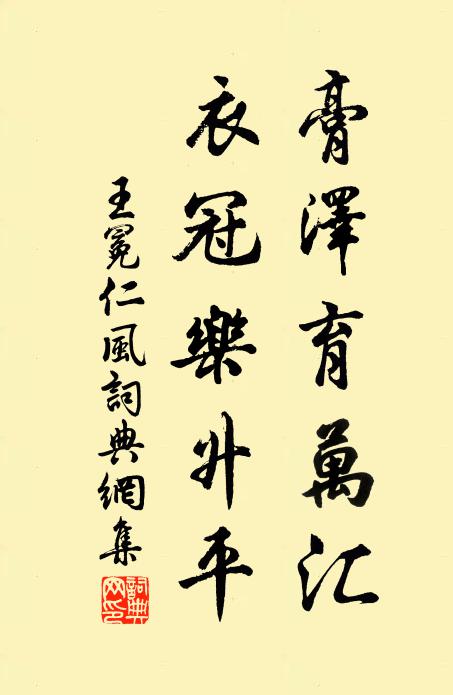 膏澤育萬汇
衣冠樂升平
王冕仁風詞典網集
詞典網印